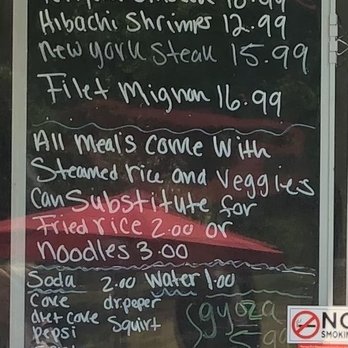 Hibachi Shrimps 12.99
New york Steak 15.99
Filet Mignon 16.99
All meal's come with
Steamed rice and Veggies
Can Substitute for
Fried rice 2.00 or
Noodles 3.00
Soda 2.00 Water 1.00
Coke dr.peper
diet coke Squirt
pepsi
gyoza
NO
SMOKIN